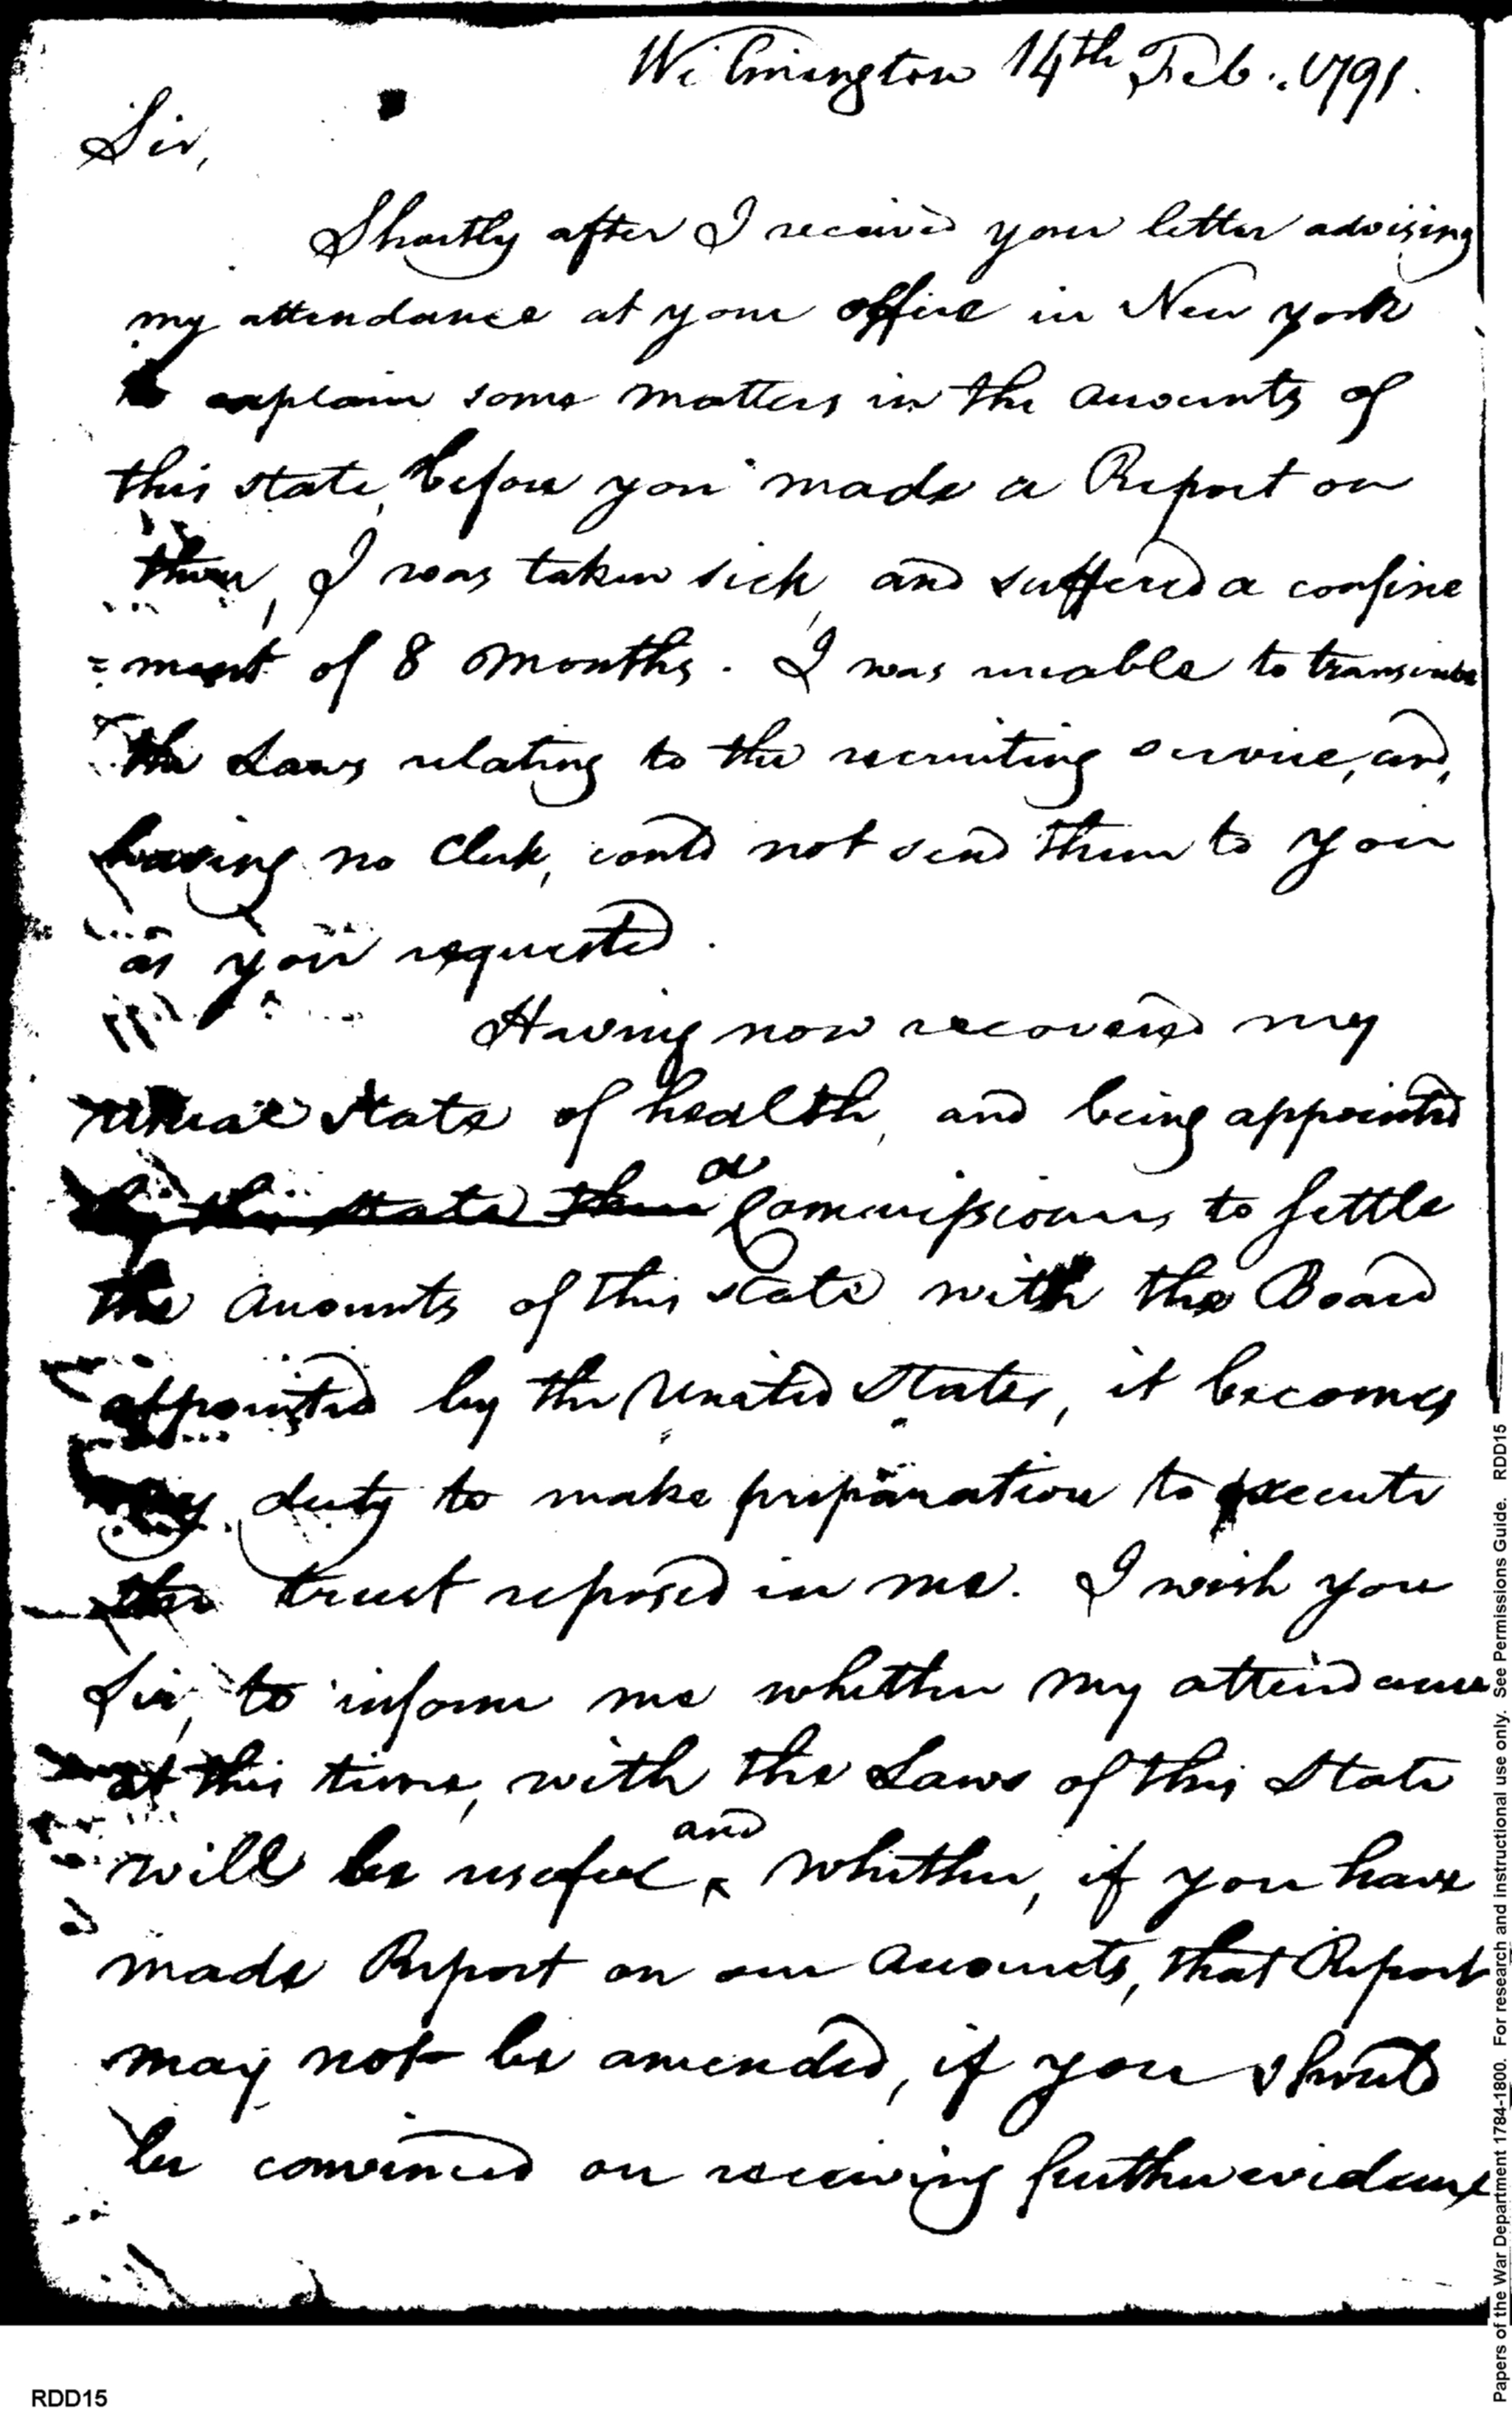 Wilmington 14th Feb. 1791.
Sir,
Shortly after I received your letter advising
my attendance at your office in New york
to explain some matters in the accounts of
this state, before you made a Report on
them, I was taken sick, and suffered a confine
=ment of 8 Months. I was unable to transcribe
the Laws relating to the recruiting service, and,
having no Clerk, could not send them to you
as you requested.
Having now recovered my
usual state of health, and being appointed
by the state then a Commissioner, to settle
the accounts of this state with the Board
appointed by the United States, it becomes
my duty to make preparation to execute
the trust reposed in me. I wish you
Sir, to inform me whether my attendance
at this time, with the Laws of this State
will be useful, and whether, if you have
made Report on our accounts, that Report
may not be amended, if you should
be convinced on receiving further evidence
Papers of the War Department 1784-1800. For research and instructional use only. See Permissions Guide. RDD15
RDD15